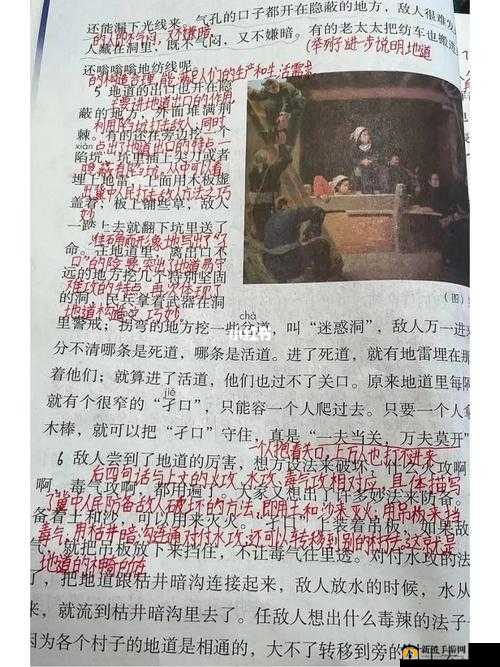 还能漏下光线来。气孔的口子都开在隐蔽的地方，敌人很难发
人藏在洞里，既不气闷，又不嫌暗。有的老太太把纺车也搬进
(举例)进一步说明地道
还嗡嗡嗡地纺线呢。
的构造合理，能满足人们的生产和生活需求
5 地道的出口也开在隐
主要讲地道出口的作用
蔽的地方，外面堆满荆
利用陷坑打击敌人，同时
棘。有的还在旁边挖一个
xiàn
点出了地道出口的特点
陷坑，坑里插上尖刀或者
隐蔽有陷坑，从中可以看
埋上地雷，上面用木板虚
出冀中人民打击敌人的方法之巧
盖着，板上铺些草，敌人
妙
一踏上去就翻下坑里送了
命。在地道里，离出口不
远的地方挖几个特别坚固
难攻的特点，再次体现了
的洞，民兵拿着武器在洞
地道构造之巧妙
(图)
chà
里警戒；拐弯的地方挖一些岔道，叫“迷惑洞”，敌人万一进来
分不清哪条是死道，哪条是活道。进了死道，就有地雷埋在那
着他们；就算进了活道，他们也过不了关口。原来地道里每隔
jié
就有个很窄的“孑口”，只能容一个人爬过去。只要一个人拿
木棒，就可以把“孑口”守住，真是“一夫当关，万夫莫开”
一个人把着关口，上万人也打不进来
6 敌人尝到了地道的厉害，想方设法来破坏，什么火攻啊
后四句话与上文的火攻、水攻、毒气攻相对应，具体描写
啊，毒气攻啊，都用遍了。大家又想出了许多妙法来防备。
了冀中人民防备敌人破坏的方法，即用土和沙来灭火，用吊板来挡
备着土和沙，可以用来灭火。“孑口”上下装着吊板，如果敌
毒气，用枯井暗沟连通对付水攻，还可以转移到别的村子。这就是
气，就把吊板放下来挡住，不让毒气往里透。对付水攻的法
地道的神奇所在
了，把地道跟枯井暗沟连接起来，敌人放水的时候，水从
来，就流到枯井暗沟里去了。任敌人想出什么毒辣的法子
因为各个村子的地道是相通的，大不了转移到旁的
小红书
新锐手游网